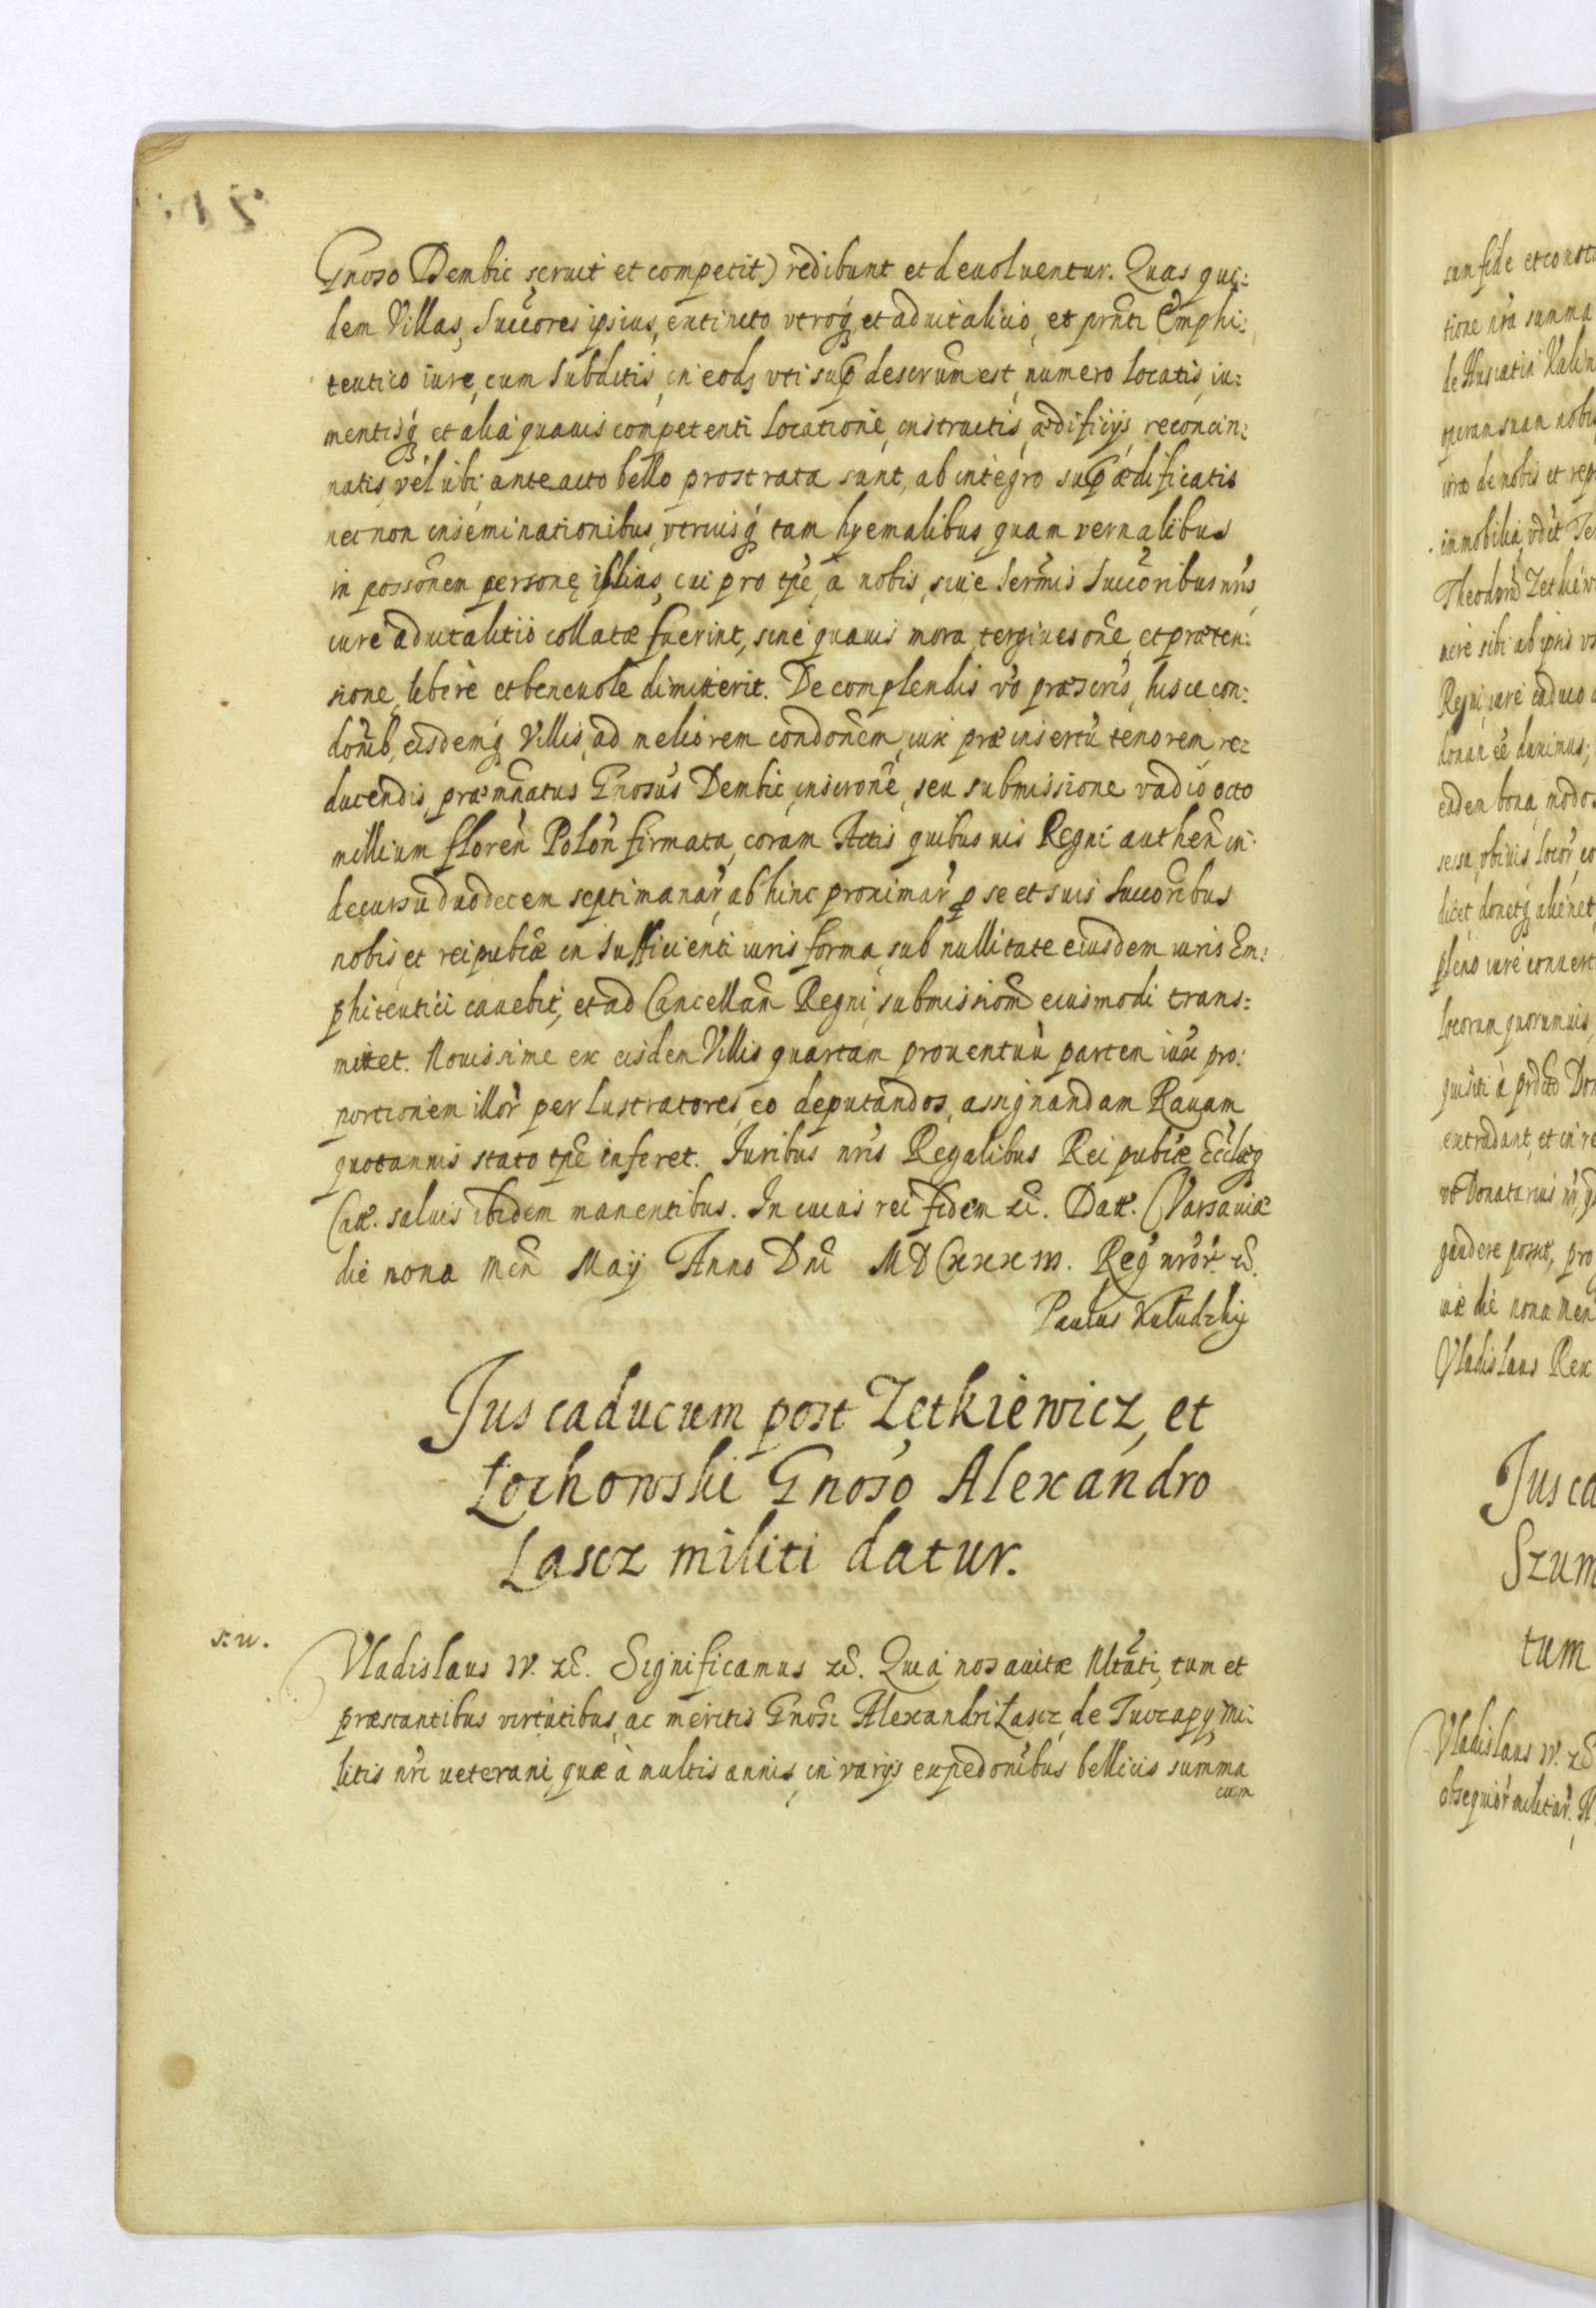 Gnoso Dembic seruit et competit) redibunt et deuoluentur. Quas qui:
dem Villas, Succores ipsius, extincto vtroq, et aduitalicio, et prnti Emphi:
teutico iure, cum subditis, in eods vti sup descrum est, numero locatis, iu:
mentisq et alia quauis competenti locatione, instructis, ædificijs, reconcin:
natis, vel ubi anteacto bello prostrata sunt, ab integro sup ædificatis
nec non inseminationibus, vtriusq tam hyemalibus quam vernalibus
in possonem personę illius, cui pro tpe, a nobis, siue Sermis Succoribus nris
iure aduitalitio collatæ fuerint, sine quauis mora, tergiuesone, et præten:
sione, libere et beneuole dimitterit. De complendis vo præscris, hisce con:
donib, eisdemq Villis, ad meliorem condonem, iux præinsertu tenorem re:
ducendis, præmnatus Gnosus Dembic, inscrone, seu submissione vadio octo
millium floren Polon firmata, coram Actis quibusuis Regni authen in
decursu duodecem septimanar, abhinc proximar p se et suis Succoribus
nobis et reipubcæ in sufficienti iuris forma, sub nullitate eiusdem iuris Em:
phiteutici cauebit, et ad Cancellam Regni, submissiom eiusmodi trans:
mittet. Nouissime ex eisdem Villis quartam prouentuu partem iux pro:
portionem illor per lustratores, eo deputandos, assignandam Rauam
quotannis stato tpe inferet. Iuribus nris Regalibus Rei pubcæ Ecclæq
Catt. saluis ibidem manentibus. In cuius rei fidem zc. Datt. Varsauiæ
die nona Men Maij Anno Dni MDCXXXIII. Reg nror. zc.
Paulus Kuludzkij
Jus caducum post Zetkiewicz, et
Łochowski Gnoso Alexandro
Łascz militi datur.
s: w.
Vladislaus IV. zc. Significamus zc. Quia nos auitæ Nltati, tum et
præstantibus virtutibus, ac meritis Gnosi Alexandri Łascz de Tuczapy, Mi:
litis nri ueterani, quæ à multis annis, in varijs expedonibus bellicis summa
cum
sum fide et consta
tione nra summa
de Husiatin Kalin
operam suam nobis
iure de nobis et rep
immobilia, vdet Te
nere sibi ab ipsis vs
Regni, iure caduco
donan ee duximus;
eadem bona, modo
sessa, vbiuis locor, co
dicet, donetq alienet
pleno iure conuert
locorum quorumuis,
quisiti à prdcto Don
extradant, et in re
vt Donatarius nr, q
gaudere possit, pro
uiæ die nona Men
Vladislaus Rex
Jus ca
Szum
tum
Vladislaus IV. zc
obsequior militar. N